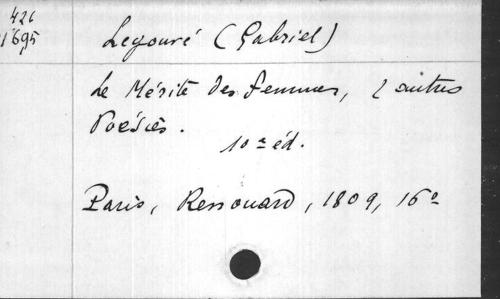 426
1695
Legouvé (Gabriel)
Le Mérite des femmes, & autres
Poésies.
10e éd.
Paris, Renouard, 1809, 16o